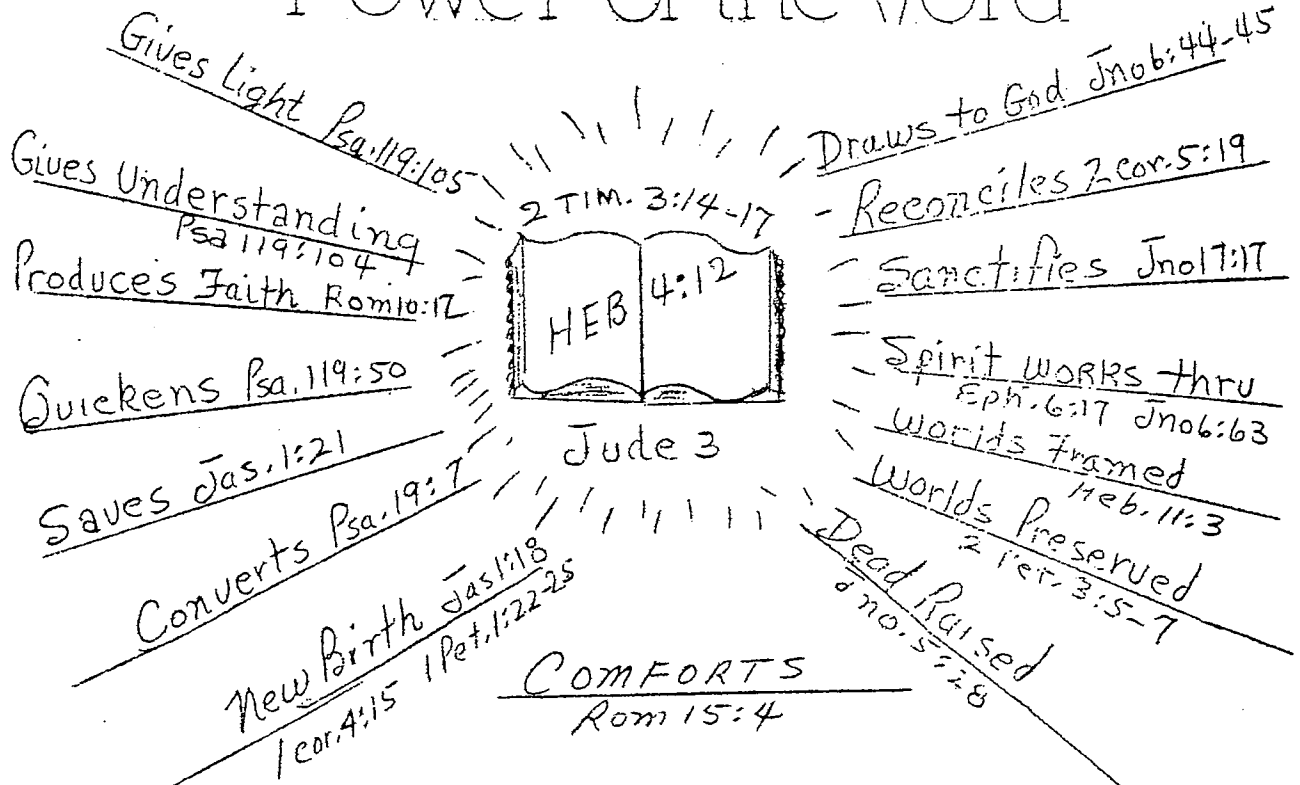 Power of the Word
Gives Light Psa. 119:105
Gives Understanding
Psa 119:104
Produces Faith Rom 10:17
Quickens Psa. 119:50
Saves Jas. 1:21
Converts Psa. 19:7
New Birth Jas 1:18
1 Cor. 4:15 1 Pet. 1:22-25
2 TIM. 3:14-17
HEB 4:12
Jude 3
COMFORTS
Rom 15:4
Draws to God Jno 6:44-45
Reconciles 2 Cor. 5:19
Sanctifies Jno 17:17
Spirit WORKS thru
Eph. 6:17 Jno 6:63
Worlds Framed
Heb. 11:3
Worlds Preserved
2 Pet. 3:5-7
Dead Raised
Jno. 5:28